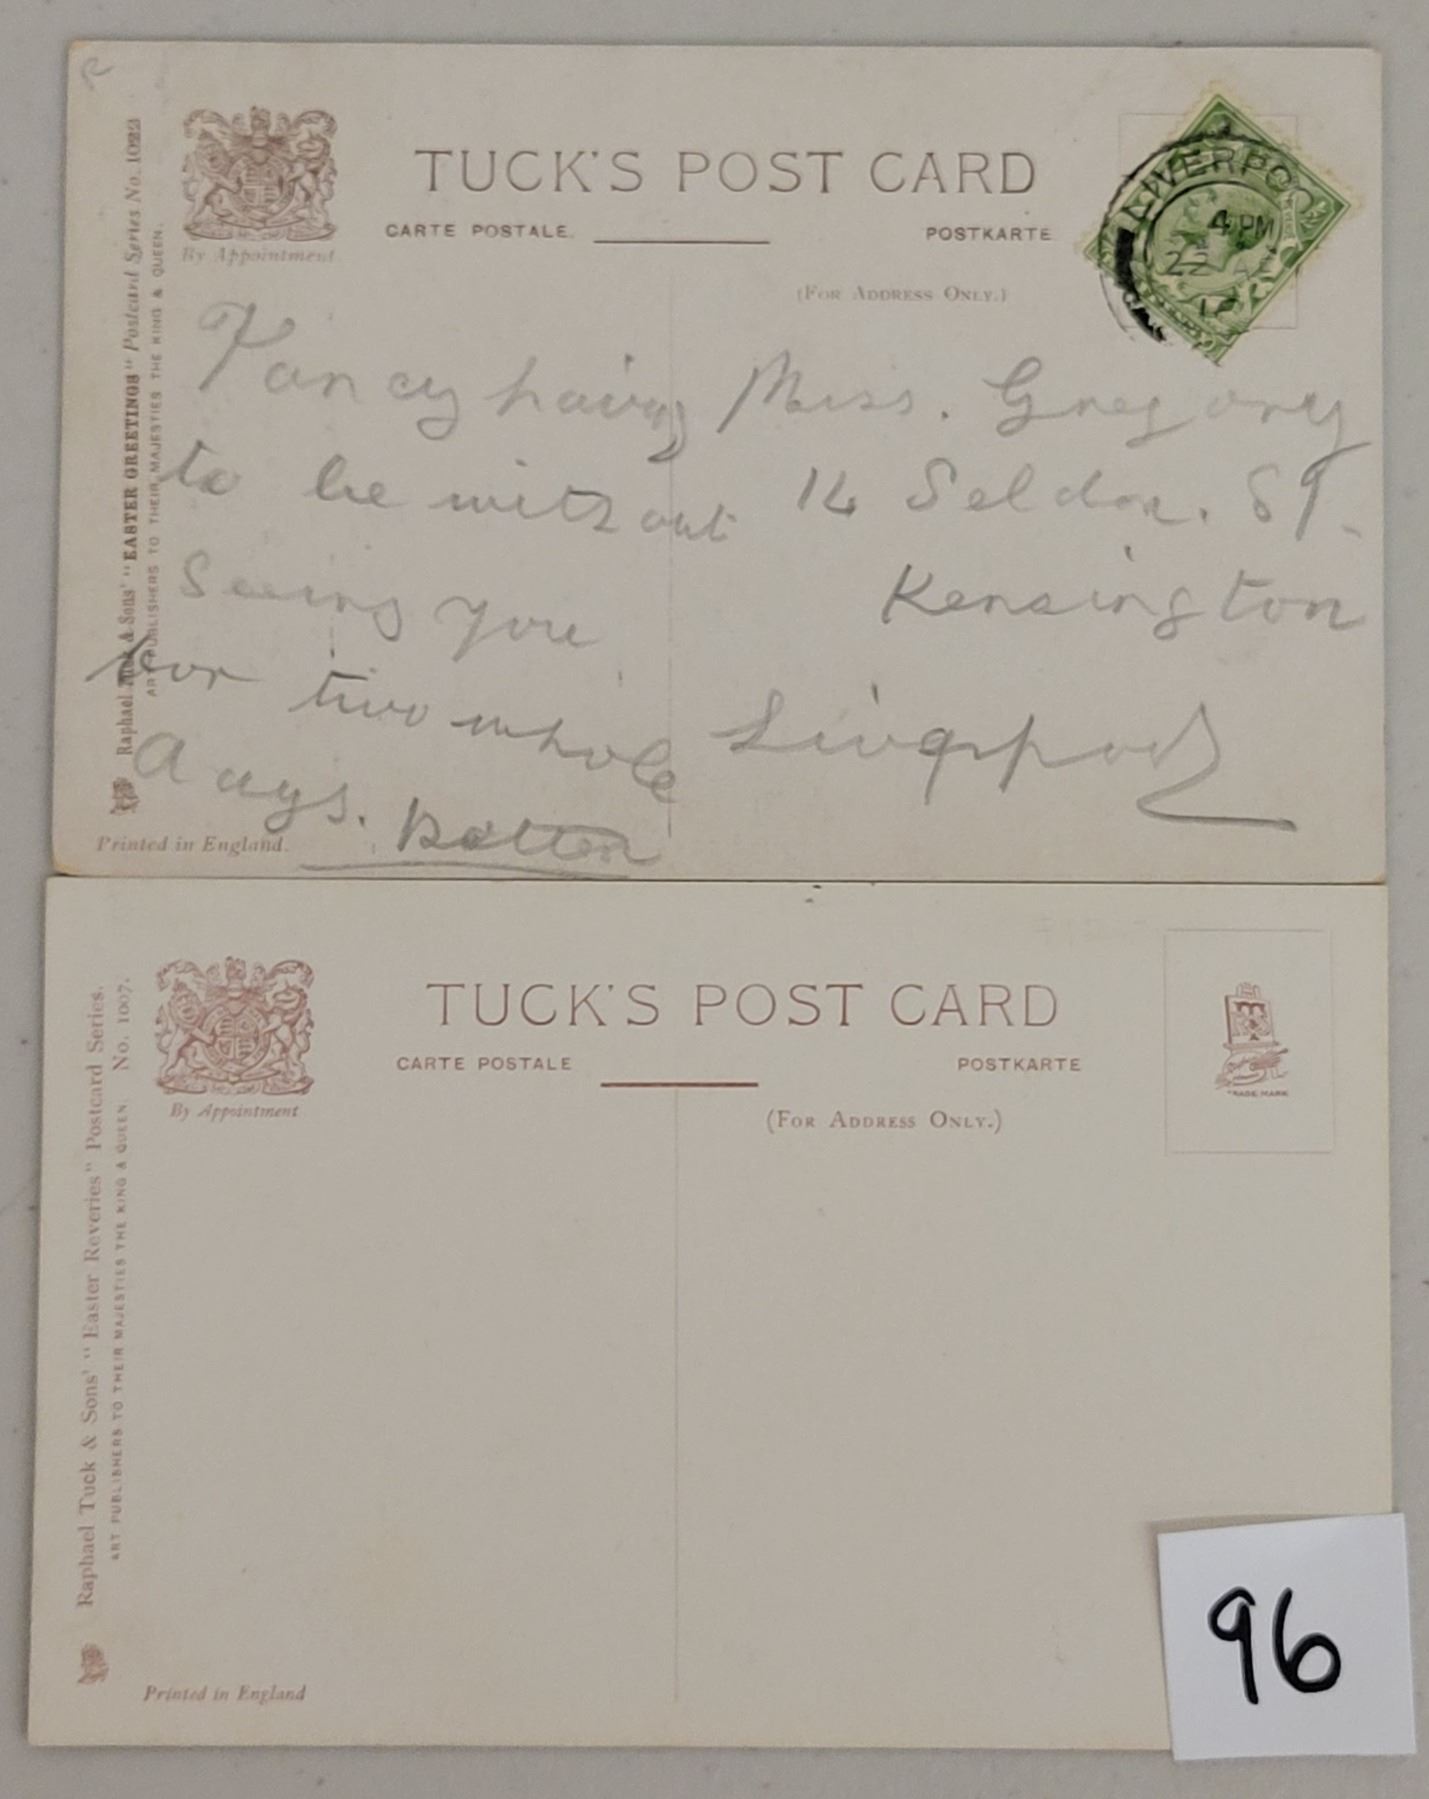 TUCK'S POST CARD
CARTE POSTALE.
POSTKARTE
By Appointment
(FOR ADDRESS ONLY.)
Raphael Tuck & Sons' "EASTER GREETINGS" Postcard Series No. 1022
ART PUBLISHERS TO THEIR MAJESTIES THE KING & QUEEN.
Printed in England.
LIVERPO
4 PM
22
Fancy having
to be without
Seeing you
for two whole
days.
Miss. Gregory
14 Seldon. St.
Kensington
Liverpool
TUCK'S POST CARD
CARTE POSTALE
POSTKARTE
By Appointment
(FOR ADDRESS ONLY.)
TRADE MARK
Raphael Tuck & Sons' "Easter Reveries" Postcard Series. No. 1007.
ART PUBLISHERS TO THEIR MAJESTIES THE KING & QUEEN.
Printed in England
96